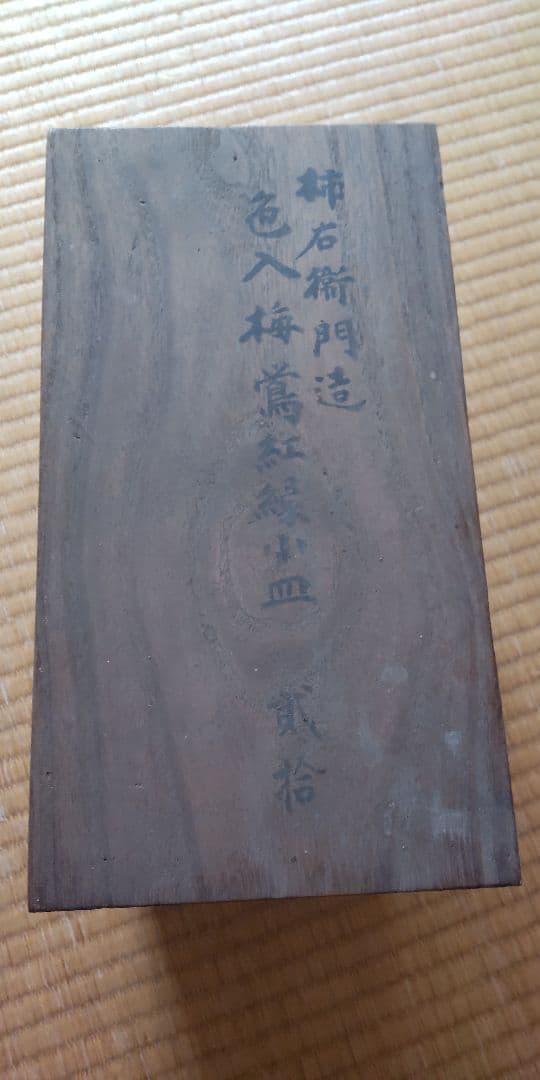 柿右衞門造
色入梅鴬紅縁小皿 貳拾